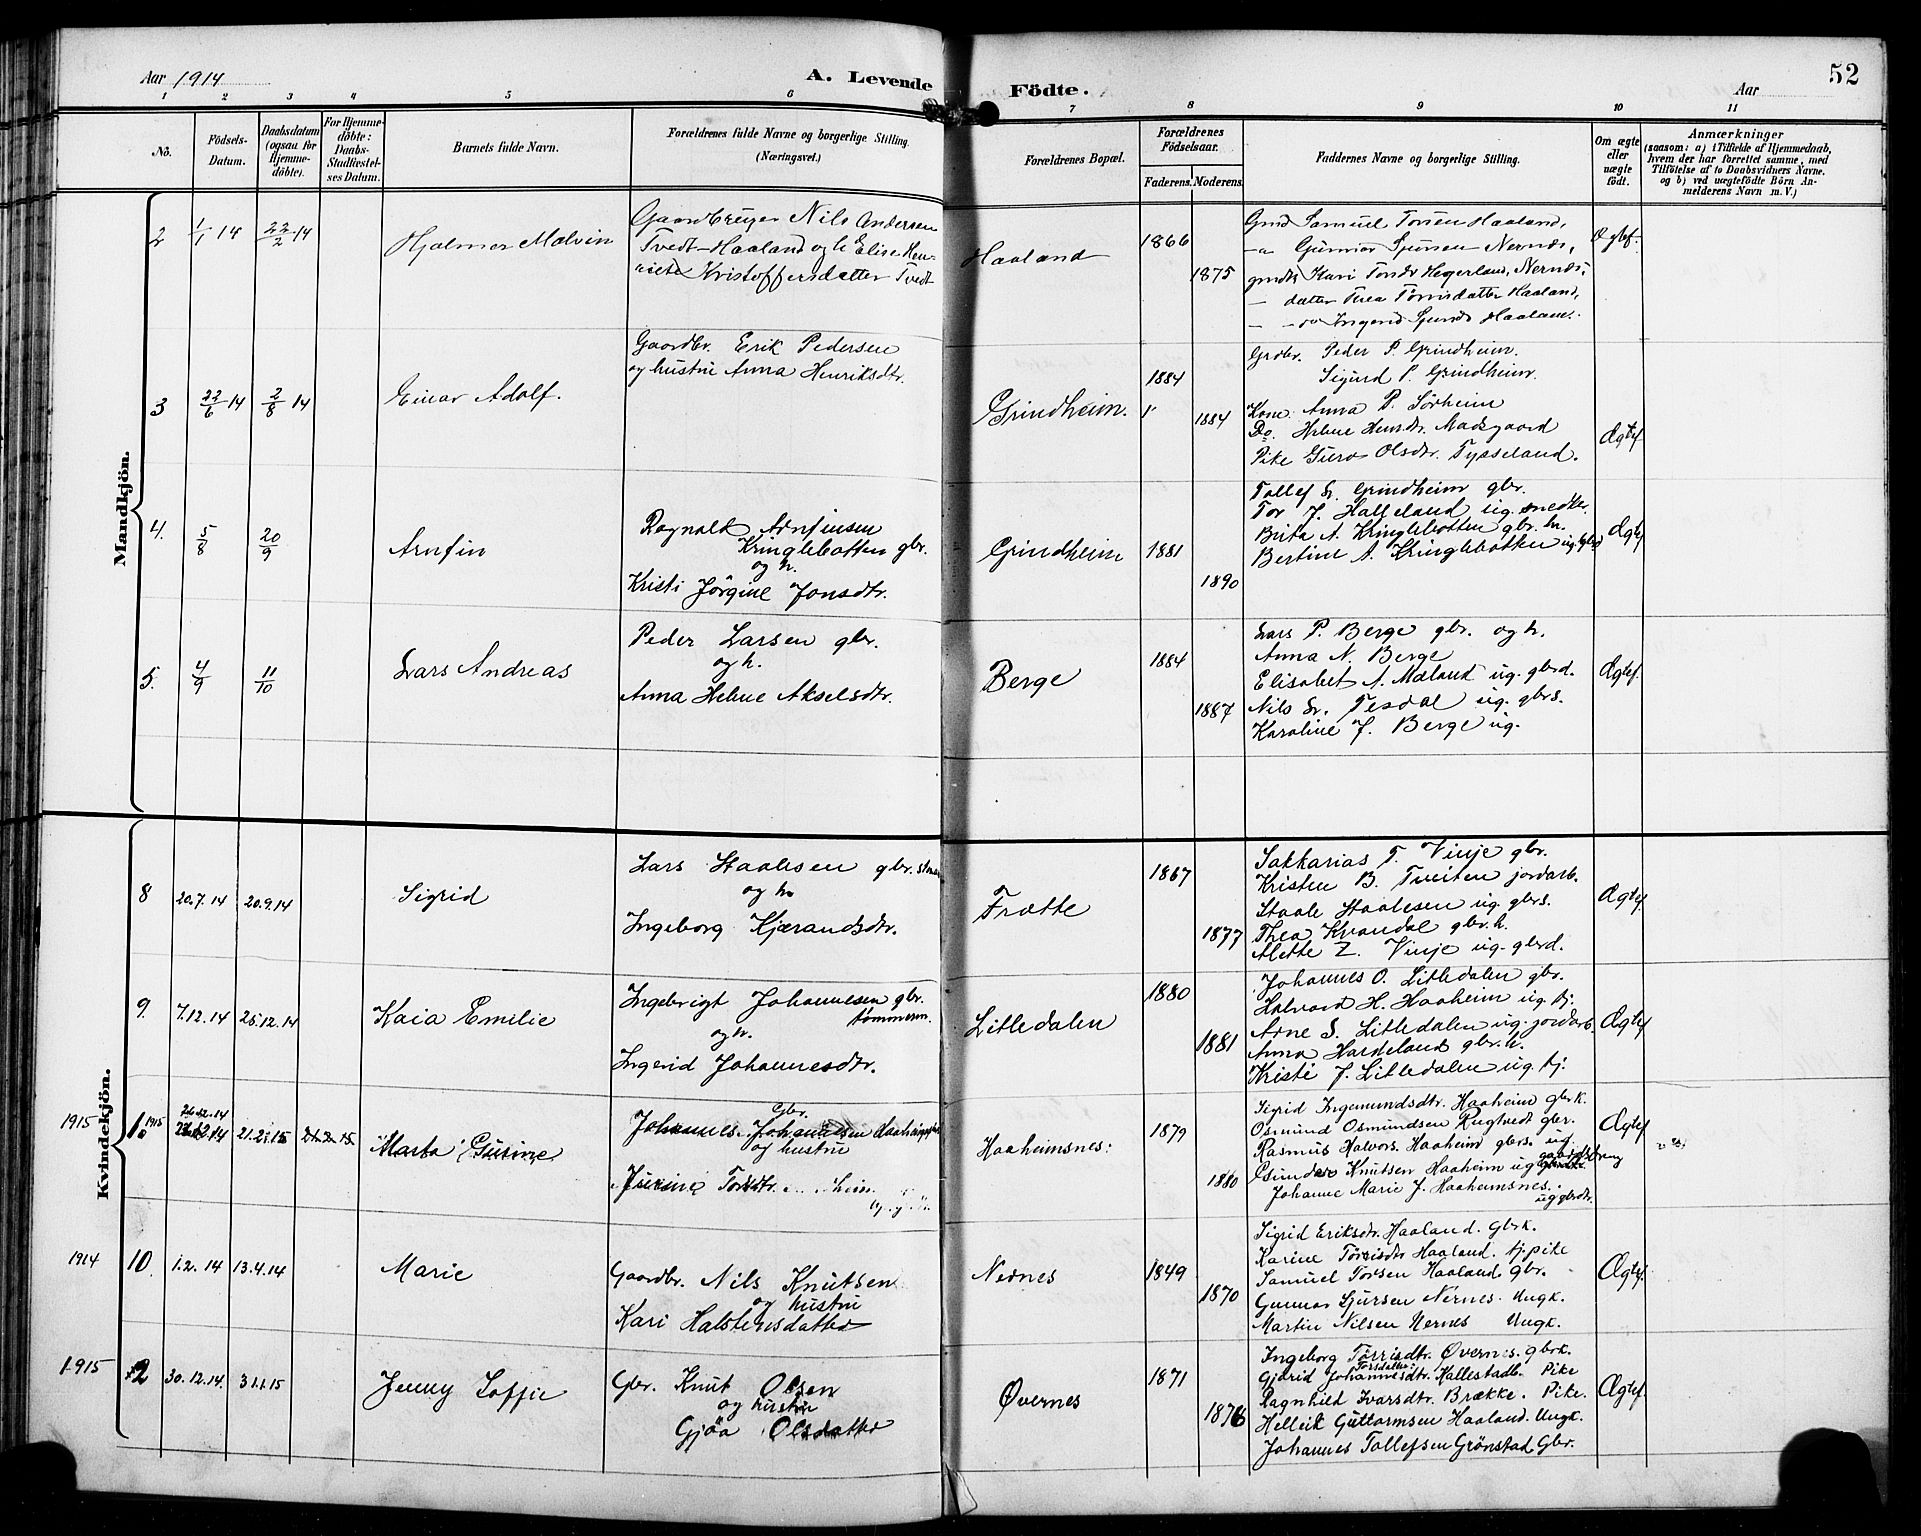 Aar 1914
A. Levende Födte.
Aar
52
1 2 3 4 5 6 7 8 9 10 11
No.
Födsels-Datum.
Daabsdatum (ogsaa for Hjemme-döbte).
For Hjemme-döbte: Daabs-Stadfæstel-ses Datum.
Barnets fulde Navn.
Forældrenes fulde Navne og borgerlige Stilling. (Næringsvei.)
Forældrenes Bopæl.
Forældrenes Födselsaar.
Faderens. Moderens.
Faddernes Navne og borgerlige Stilling.
Om ægte eller uægte födt.
Anmærkninger
(saasom: a) i Tilfælde af Hjemmedaab, hvem der har forrettet samme, med Tilföielse af to Daabsvidners Navne. og b) ved uægtefödte Börn An-melderens Navn m. V.)
Mandkjön.
2 1/1 14 22/2 14
Hjalmar Malvin
Gaardbruger Nils Andersen
Tvedt-Haaland og h Elise Hen-
riete Kristoffersdatter Tvedt
Haaland
1866
1875
Gmd Samuel Torsen Haaland,
Gunnar Sjursen Nernæs,
gmds Kari Tordr Hegerland, Nernæs,
datter Thea Torrisdatter Haaland,
do Ingerid Sjursd Haaland.
Ægtef.
3 22/6 14 2/8 14
Einar Adolf.
Gaardbr. Erik Pedersen
og hustru Anna Henriksdtr.
Grindheim.
1884
1884
Grdbr. Peder P. Grindheim.
Sigurd P. Grindheim.
Kone Anna P. Sörheim
Do. Helene Henrdr. Madsgaard
Pike Guro Olsdtr. Tysseland.
Ægtef
4. 5/8 20/9
Arnfin
Ragnald Arnfinsen
Kringlebotten gbr.
og h.
Kristi Jörgine Jonsdtr.
Grindheim
1881
1890
Tollef Sr. Grindheim gbr.
Tor J. Halleland ug. snedker.
Brita A. Kringlebotten gbr. h.
Bertine A. Kringlebotten ug. gbrd
Ægtef
5. 4/9 11/10
Lars Andreas
Peder Larsen gbr.
og h.
Anna Helene Akselsdtr.
Berge
1884
1887
Lars P. Berge gbr. og h.
Anna N. Berge
Elisabet A. Mæland ug. gbrd.
Nils Sr. Tesdal ug. gbrs.
Karoline J. Berge ug.
Ægtef.
Kvindekjön.
8 20.7.14 20.9.14
Sigrid
Lars Staalesen gbr.
og h.
Ingeborg Kjærandsdtr.
Frætte
1867
1877
Sakkarias T. Vinje gbr.
Kristen B. Tveiten jordarb.
Staale Staalesen ug. gbrs.
Thea Kvandal gbr. h.
Alette Z. Vinje ug. gbrd.
Ægtef.
9. 7.12.14 25.12.14
Kaia Emilie
Ingebrigt Johannesen gbr.
tömmerm.
og h.
Ingerid Johannesdtr.
Litledalen
1880
1881
Johannes O. Litledalen gbr.
Halvard H. Haaheim ug. tj.
Arne S. Litledalen ug. jordarb.
Anna Hardeland gbr. h.
Kristi J. Litledalen ug. tj.
Ægtef
1915 1. 1915 21.2.15 21.2.15
Marta Gusine
Gbr.
Johannes Johannesen Haaheimsnes
og hustru
Haaheimsnes:
1879
1880
Sigrid Ingemundsdtr. Haaheim gbrk.
Osmund Osmundsen Rugtvedt gbr.
Rasmus Halvors. Haaheim gbrs. ug.
Knutsen Haaheim ug gaardsdreng
Johanne Marie J. Haaheimsnes.
ug gbrdtr.
Ægtef
1914 10. 1.2.14 13.4.14
Marie
Gaardbr. Nils Knutsen
og hustru
Kari Halstensdatter
Nernes
1849
1870
Sigrid Eriksdtr. Haaland. Gbrk.
Karine Torrisdtr Haaland. tj. pike
Samuel Torsen Haaland. gbr.
Gunnar Sjursen Nernes. Ungk.
Martin Nilsen Nernes Ungk.
Ægtef.
1915 2 30.12.14. 31.1.15
Jenny Soffie
Gbr. Knut Olsen
og hustru
Gjöa Olsdatter
Øvernes
1871
1876
Ingeborg Torrisdtr. Øvernes. gbrk.
Torsdatter:
Gjærid Johannesdtr. Kallestadb. Pike
Ragnhild Ivarsdtr. Brække. Pike.
Helleik Guttormsen Haaland. Ungk.
Johannes Tollefsen Grönstad Gbr.
Ægtef.